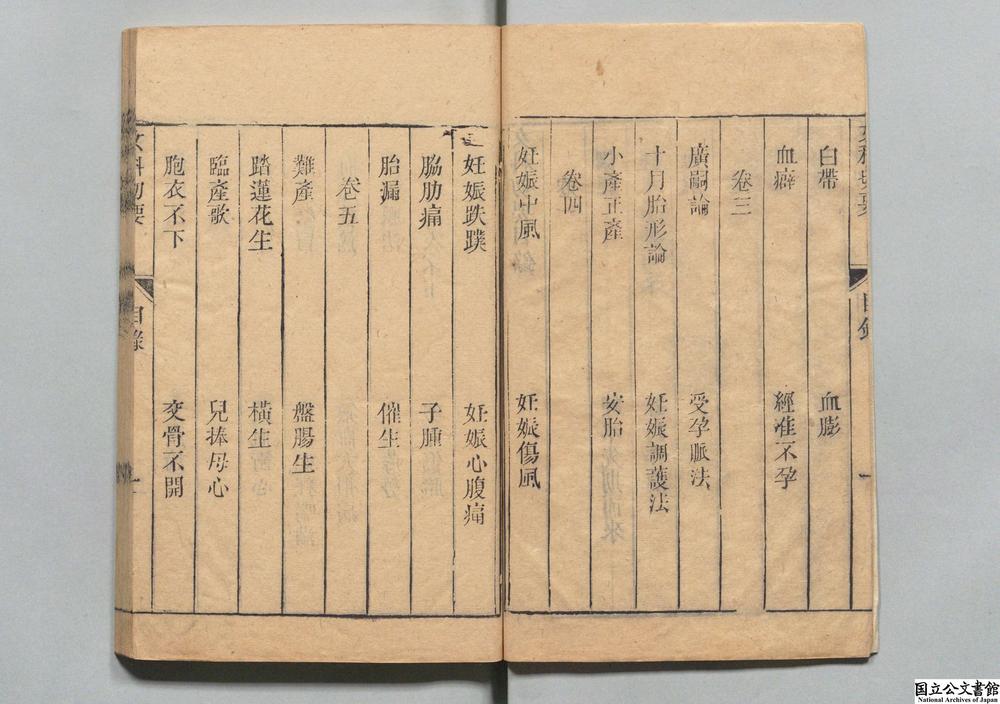 白帶　血膨
血癖　經准不孕
卷三
廣嗣論　受孕脈法
十月胎形論　妊娠調護法
小產正產　安胎
卷四
妊娠中風　妊娠傷風
妊娠跌蹼　妊娠心腹痛
脇肋痛　子腫
胎漏　催生
卷五
難產　盤腸生
踏蓮花生　橫生
臨產歌　兒捧母心
胞衣不下　交骨不開
女科切要
目錄
国立公文書館
National Archives of Japan